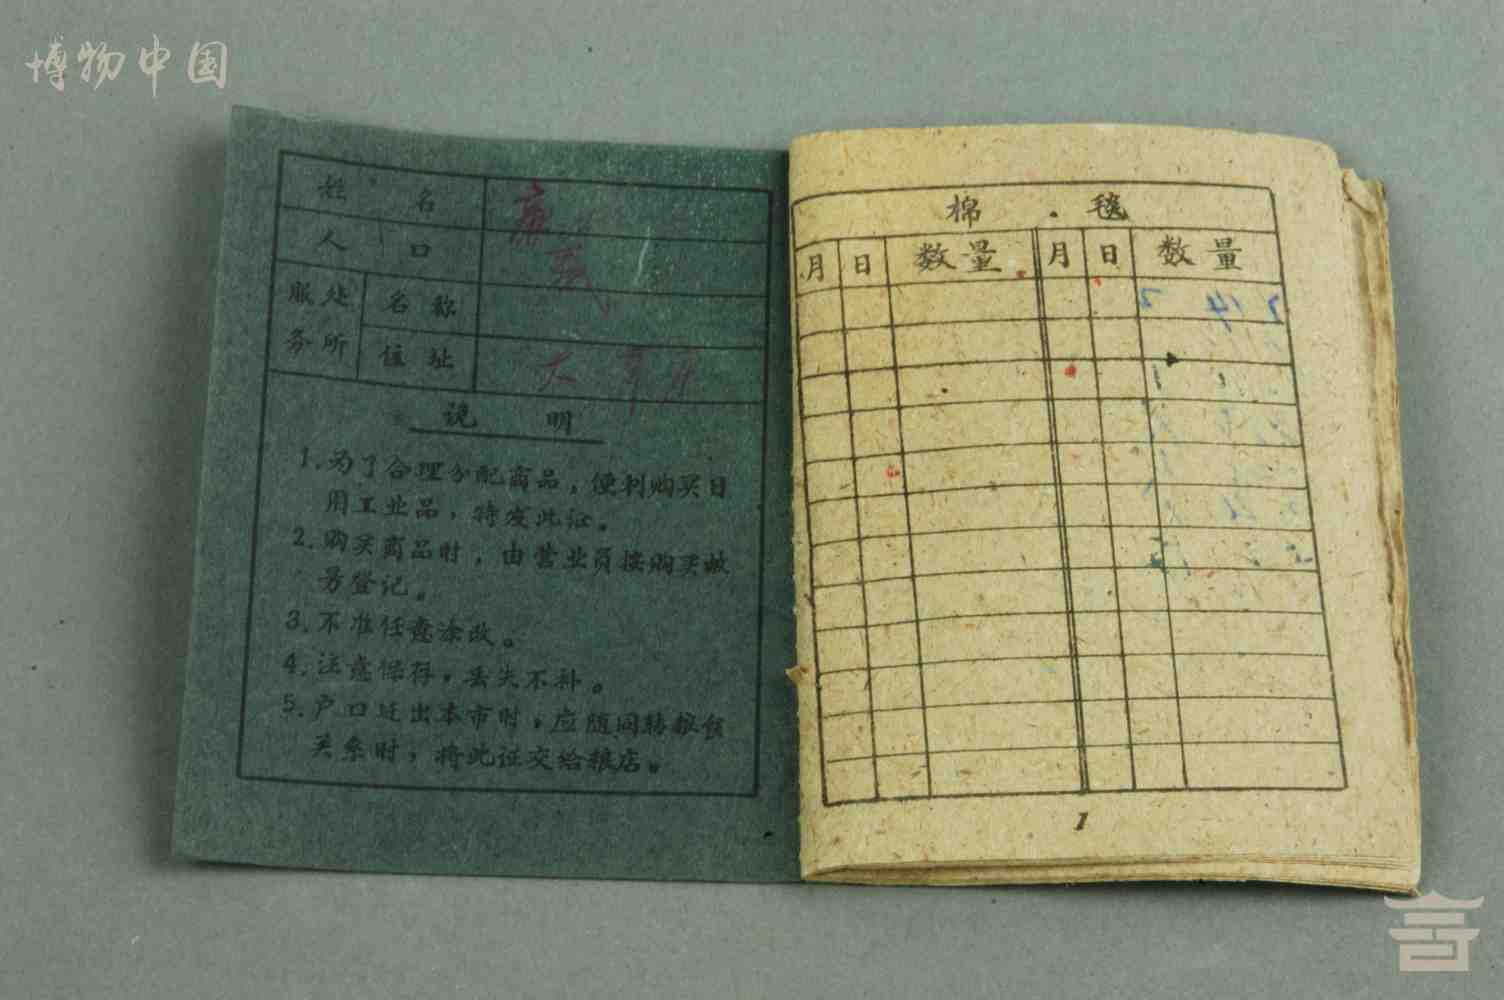 博物中国
姓名
人口
服务处所
名称
住址
说明
1.为了合理分配商品，便利购买日
用工业品，特发此证。
2.购买商品时，由营业员按购买数
另登记。
3.不准任意涂改。
4.注意保存，丢失不补。
5.户口迁出本市时，应随同转粮食
关系时，将此证交给粮店。
棉毯
月 日 数量 月 日 数量
1